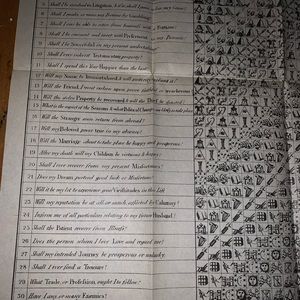 6 Shall I be involved in Litigation, & if so, shall I gain
7 Shall I make, or mar, my Fortune by Gambling?
8 Shall I ever be able to retire from Fortune?
9 Shall I be eminent, and meet with Preferment in my
10 Shall I be Successful in my present undertaking?
11 Shall I ever inherit Testamentary property?
12 Shall I spend this Year Happier than the last?
12 Will my Name be Immortalized, & will posterity applaud it?
13 Will the Friend I most reckon upon prove faithful or treacherous?
14 Will the stolen Property be recovered & will the Thief be detected?
15 What is the aspect of the Seasons & what Political Changes are likely to take place
16 Will the Stranger soon return from abroad?
17 Will my Beloved prove true in my absence?
18 Will the Marriage about to take place be happy and prosperous?
19 After my death will my Children be virtuous & happy?
20 Shall I ever recover from my present Misfortunes?
21 Does my Dream portend good luck or Misfortune?
22 Will it be my lot to experience great Vicissitudes in this Life
23 Will my reputation be at all or much affected by Calumny?
24 Inform me of all particulars relating to my future Husband?
25 Shall the Patient recover from Illness?
26 Does the person whom I love Love and regard me?
27 Shall my intended Journey be prosperous or unlucky?
28 Shall I ever find a Treasure?
29 What Trade, or Profession, ought I to follow?
30 Have I any or many Enemies?